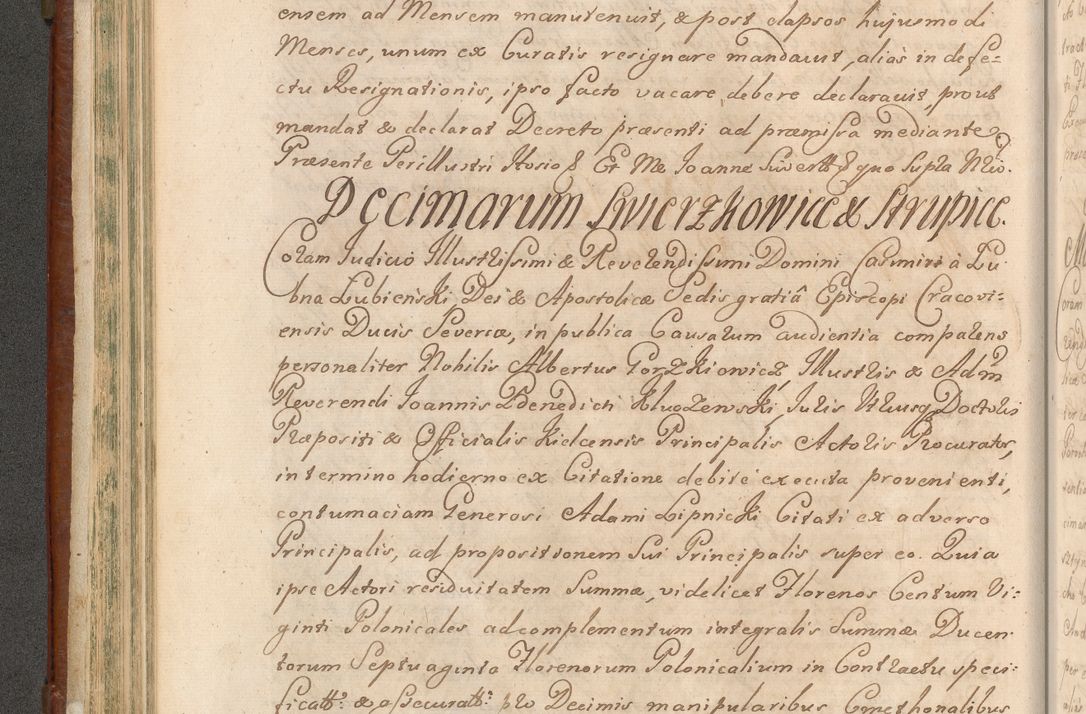 ensem ad Mensem manutenuit, & post elapsos hujusmodi
Menses, unum ex Curatis resignare mandavit, alias in defe=
ctu Resignationis, ipso facto vacare debere declaravit, prout
mandat & declarat Decreto præsenti ad præmissa mediante
Præsente Perillustri Et Me Joanne quo supra
Decimarum Swierzkowice & Strupice.
Coram Judicio Illustrissimi & Reverendissimi Domini Casimiri à Łu
bna Łubienski, Dei & Apostolicæ Sedis gratiâ Episcopi Cracovi=
ensis Ducis Severiæ, in publica Causarum audientia comparens
personaliter Nobilis Albertus Gorzkiowicz, Illustris & Adm
Reverendi Joannis Benedicti Juris Utriusq Doctoris
Præpositi & Officialis Kielcensis Principalis Actoris Procurator,
in termino hodierno ex Citatione debite executa provenienti,
contumaciam Generosi Adami Lipnicki Citati ex adverso
Principalis, ad propositionem Sui Principalis super eo. Quia
ipse Actori residuitatem Summæ, videlicet Florenos Centum Vi=
ginti Polonicales ad complementum integralis Summæ Ducen
torum Septuaginta Florenorum Polonicalium in Contractu speci=
ficatt: & assecuratt: pro Decimis manipularibus Cmethonalibus